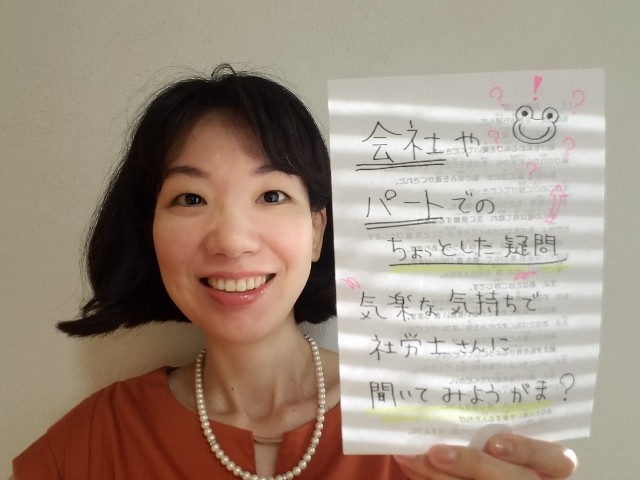 会社や
パートでの
ちょっとした疑問
気楽な気持ちで
社労士さんに
聞いてみようがま?